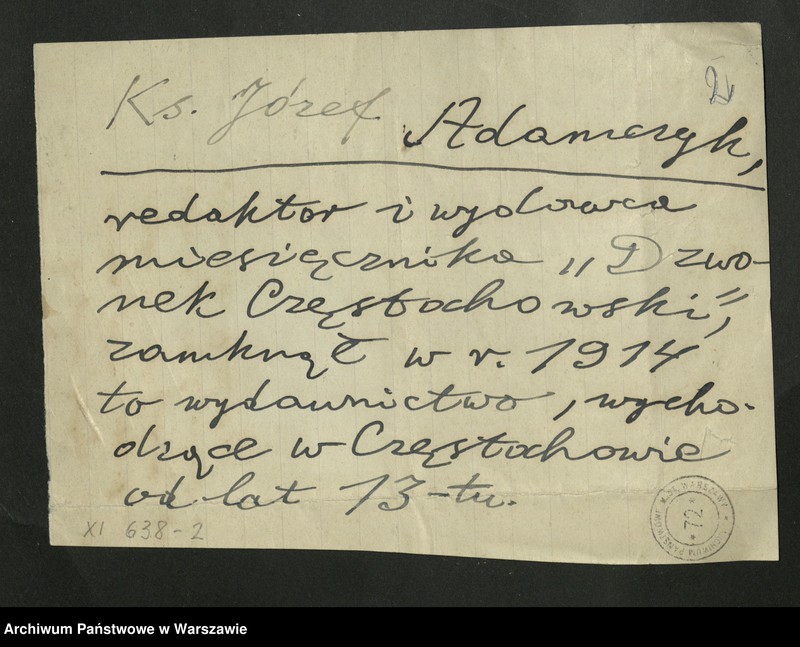 2
Ks. Józef Adamczyk,
redaktor i wydawca
miesięcznika „Dzwo-
nek Częstochowski”,
zamknął w r. 1914
to wydawnictwo, wycho-
dzące w Częstochowie
od lat 13-tu.
XI 638-2
ARCHIWUM PAŃSTWOWE M.ST. WARSZAWY
* 72 *
Archiwum Państwowe w Warszawie